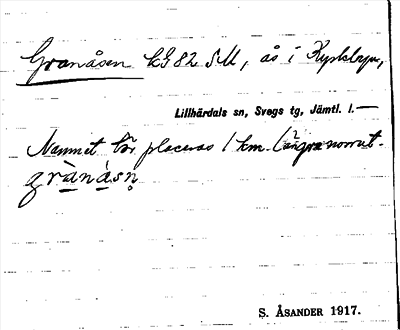 Granåsen kg 82 SM, ås i
Lillhärdals sn, Svegs tg, Jämtl. l.—
Namnet bör placeras 1 km. längre norrut.
grànåsn̥
S. ÅSANDER 1917.